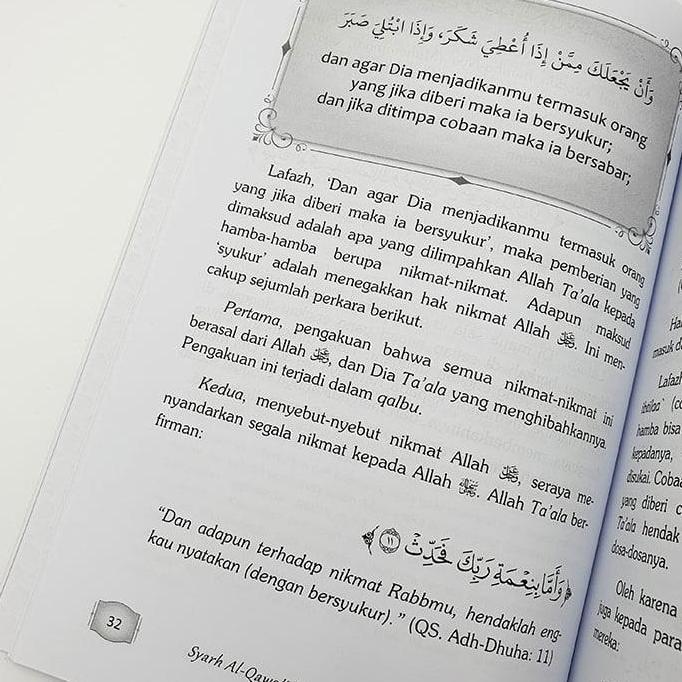 وَأَنْ يَجْعَلَكَ مِمَّنْ إِذَا أُعْطِيَ شَكَرَ، وَإِذَا ابْتُلِيَ صَبَرَ
dan agar Dia menjadikanmu termasuk orang
yang jika diberi maka ia bersyukur;
dan jika ditimpa cobaan maka ia bersabar;
Lafazh, ‘Dan agar Dia menjadikanmu termasuk orang
yang jika diberi maka ia bersyukur’, maka pemberian yang
dimaksud adalah apa yang dilimpahkan Allah Ta’ala kepada
hamba-hamba berupa nikmat-nikmat. Adapun maksud
‘syukur’ adalah menegakkan hak nikmat Allah ﷻ. Ini men-
cakup sejumlah perkara berikut.
Pertama, pengakuan bahwa semua nikmat-nikmat ini
berasal dari Allah ﷻ, dan Dia Ta’ala yang menghibahkannya.
Pengakuan ini terjadi dalam qalbu.
Kedua, menyebut-nyebut nikmat Allah ﷻ, seraya me-
nyandarkan segala nikmat kepada Allah ﷻ. Allah Ta’ala ber-
firman:
﴿وَأَمَّا بِنِعْمَةِ رَبِّكَ فَحَدِّثْ ١١﴾
“Dan adapun terhadap nikmat Rabbmu, hendaklah eng-
kau nyatakan (dengan bersyukur).” (QS. Adh-Dhuha: 11)
32
Syarh Al-Qawa
Ha
masuk d
Lafazh
(co
hamba bisa
kepadanya,
disukai. Coba
yang diberi c
Ta’ala hendak
dosa-dosanya.
Oleh karena
juga kepada para
mereka: